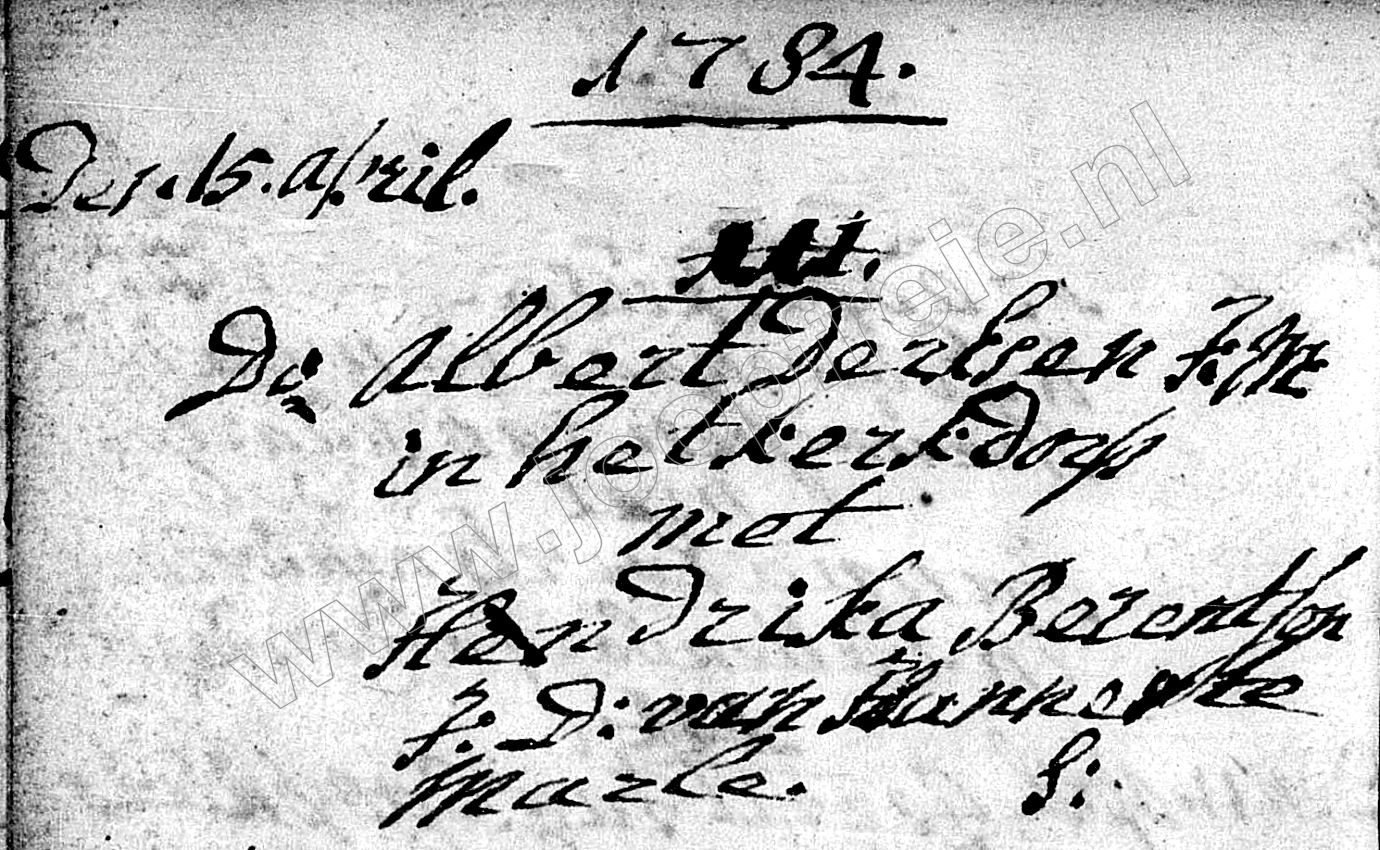 1784.
Den. 15. april.
Di: Albert Derksen j: M:
in het kerkdorp
met
Hendrika Berentsen
j: D: van Hannes te
Marle. S:
www.joopreie.nl